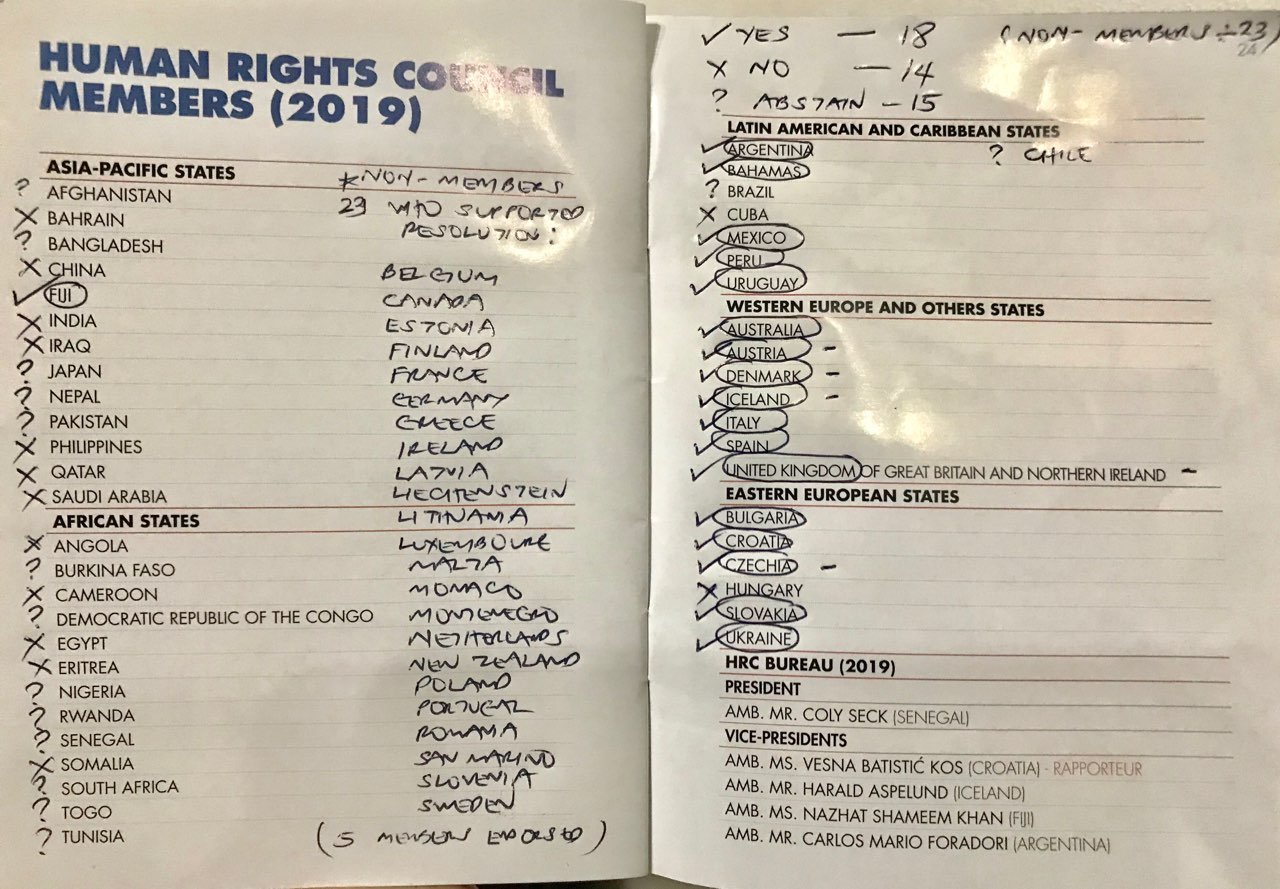 HUMAN RIGHTS COUNCIL
MEMBERS (2019)
ASIA-PACIFIC STATES
? AFGHANISTAN
X BAHRAIN
? BANGLADESH
X CHINA
✓ FIJI
X INDIA
X IRAQ
? JAPAN
? NEPAL
? PAKISTAN
X PHILIPPINES
X QATAR
X SAUDI ARABIA
AFRICAN STATES
X ANGOLA
? BURKINA FASO
X CAMEROON
? DEMOCRATIC REPUBLIC OF THE CONGO
X EGYPT
X ERITREA
? NIGERIA
? RWANDA
? SENEGAL
X SOMALIA
? SOUTH AFRICA
? TOGO
? TUNISIA
*NON-MEMBERS
23 WHO SUPPORTED
RESOLUTION:
BELGIUM
CANADA
ESTONIA
FINLAND
FRANCE
GERMANY
GREECE
IRELAND
LATVIA
LIECHTENSTEIN
LITHUANIA
LUXEMBOURG
MALTA
MONACO
MONTENEGRO
NETHERLANDS
NEW ZEALAND
POLAND
PORTUGAL
ROMANIA
SAN MARINO
SLOVENIA
SWEDEN
(5 MEMBERS ENDORSED)
✓ YES — 18 (NON-MEMBERS - 23)
24
X NO — 14
? ABSTAIN - 15
LATIN AMERICAN AND CARIBBEAN STATES
✓ ARGENTINA ? CHILE
✓ BAHAMAS
? BRAZIL
X CUBA
✓ MEXICO
✓ PERU
✓ URUGUAY
WESTERN EUROPE AND OTHERS STATES
✓ AUSTRALIA
✓ AUSTRIA -
✓ DENMARK -
✓ ICELAND -
✓ ITALY
✓ SPAIN
✓ UNITED KINGDOM OF GREAT BRITAIN AND NORTHERN IRELAND -
EASTERN EUROPEAN STATES
✓ BULGARIA
✓ CROATIA
✓ CZECHIA -
X HUNGARY
✓ SLOVAKIA
✓ UKRAINE
HRC BUREAU (2019)
PRESIDENT
AMB. MR. COLY SECK (SENEGAL)
VICE-PRESIDENTS
AMB. MS. VESNA BATISTIĆ KOS (CROATIA) - RAPPORTEUR
AMB. MR. HARALD ASPELUND (ICELAND)
AMB. MS. NAZHAT SHAMEEM KHAN (FIJI)
AMB. MR. CARLOS MARIO FORADORI (ARGENTINA)